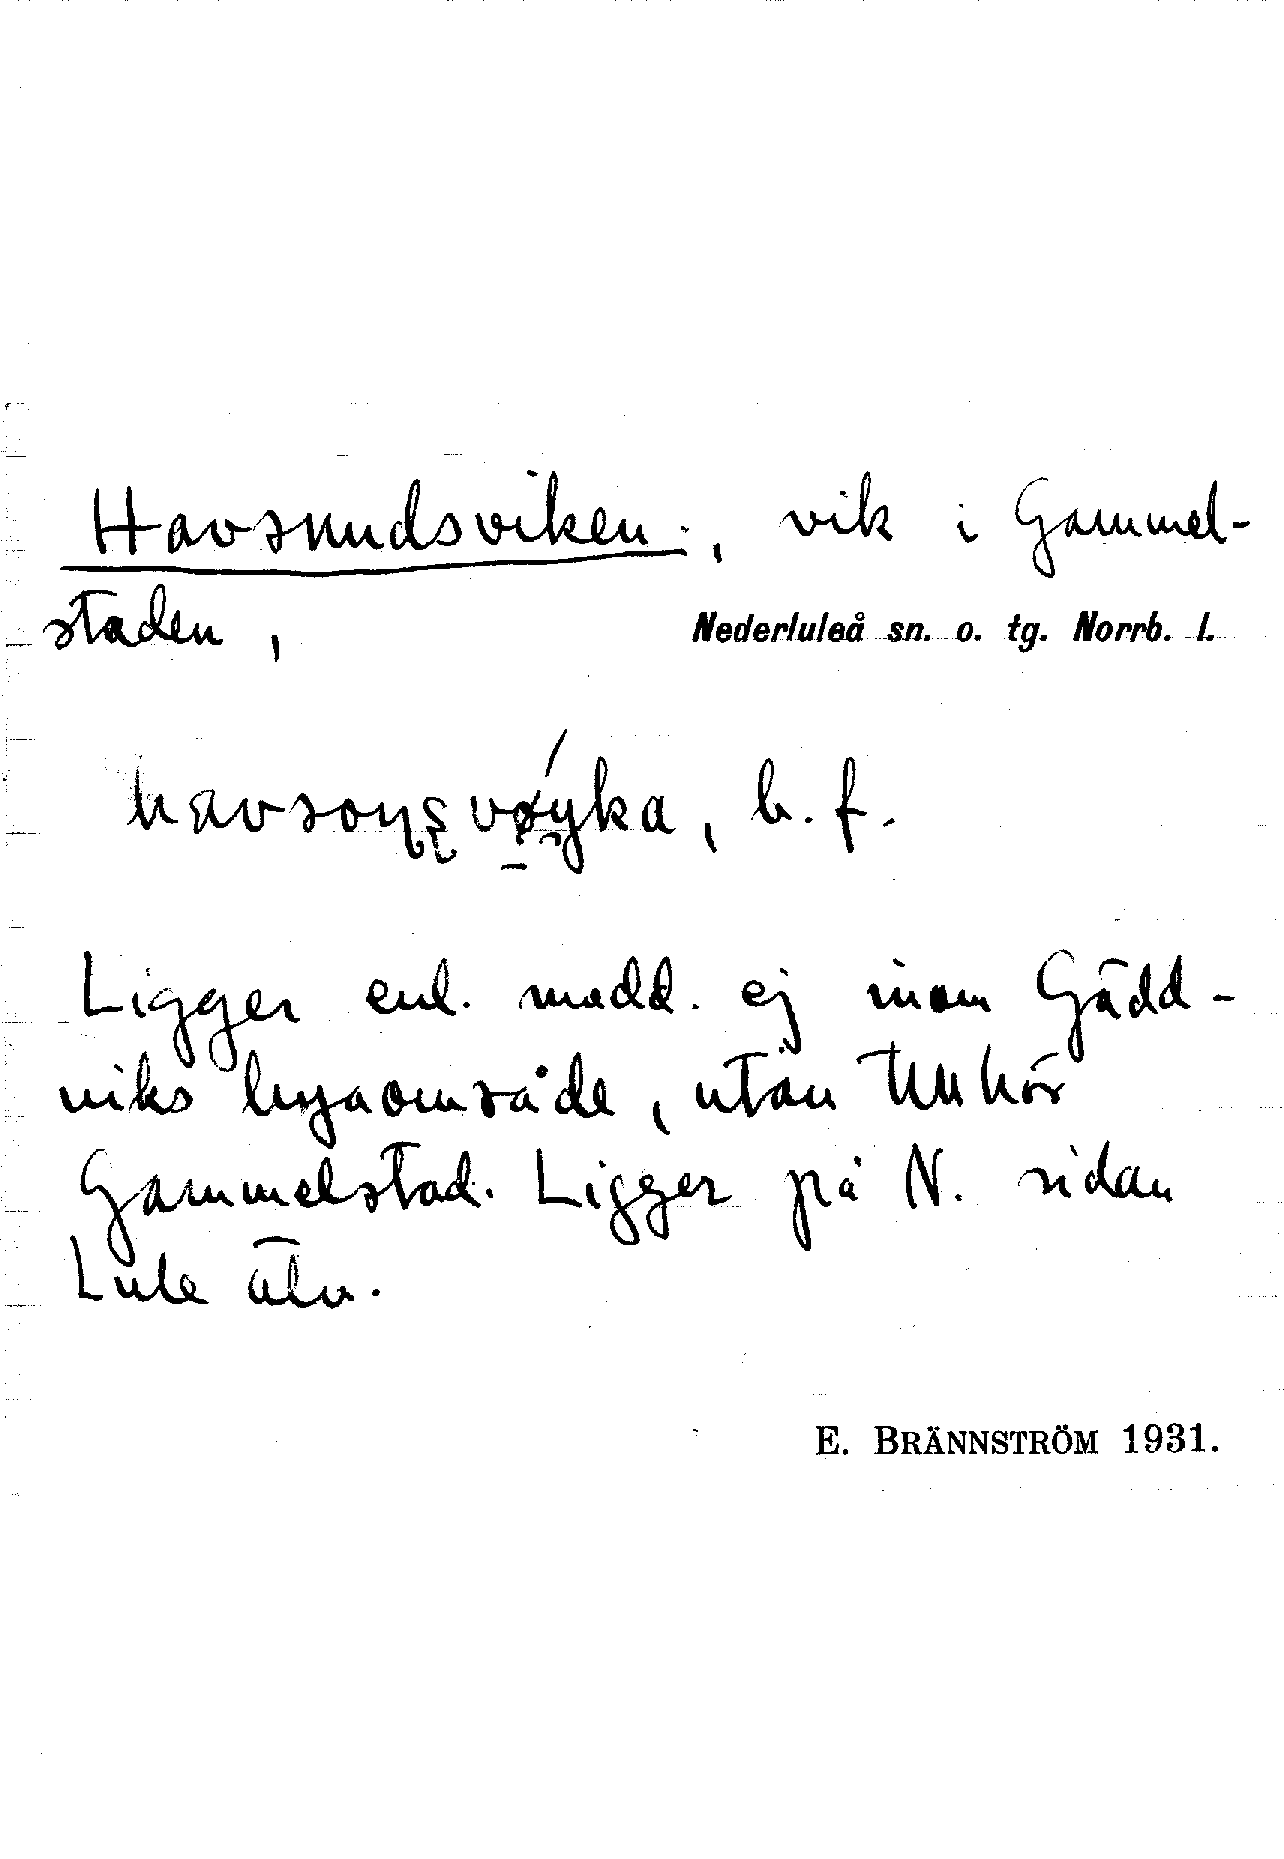 Havssundsviken, vik i Gammel-
staden, Nederluleå sn. o. tg. Norrb. l.
b. f.
Ligger enl. medd. ej inom Gädd-
viks byaområde, utan tillhör
Gammelstad. Ligger på N. sidan
Lule älv.
E. BRÄNNSTRÖM 1931.